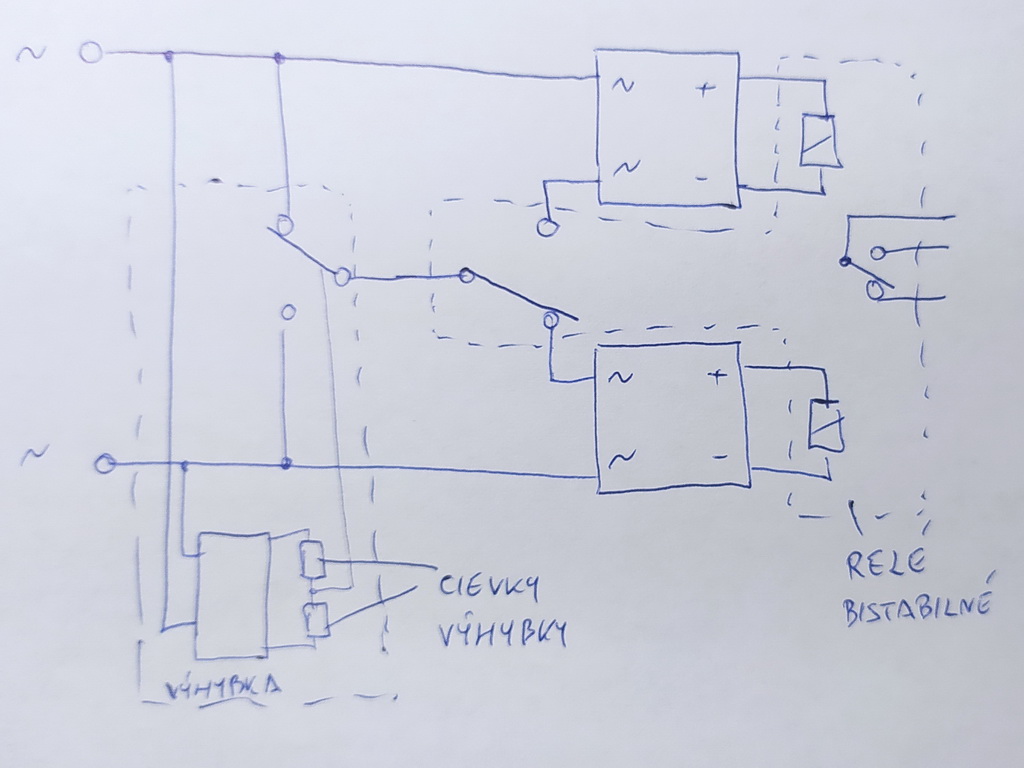 ~
~ +
~ -
~ +
~
~ -
CIEVKY
VÝHYBKY
RELE
BISTABILNÉ
VÝHYBKA